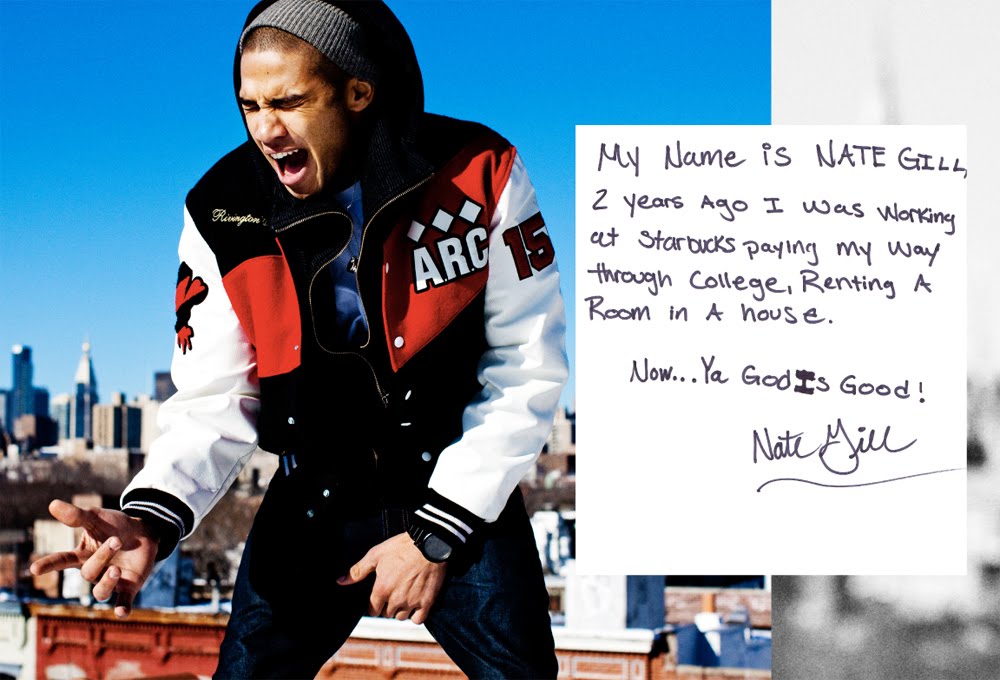 Rivington's
A.R.C
15
My Name is NATE GILL,
2 years Ago I was working
at Starbucks paying my way
through College, Renting A
Room in A house.
Now...Ya God Is Good!
Nate Gill